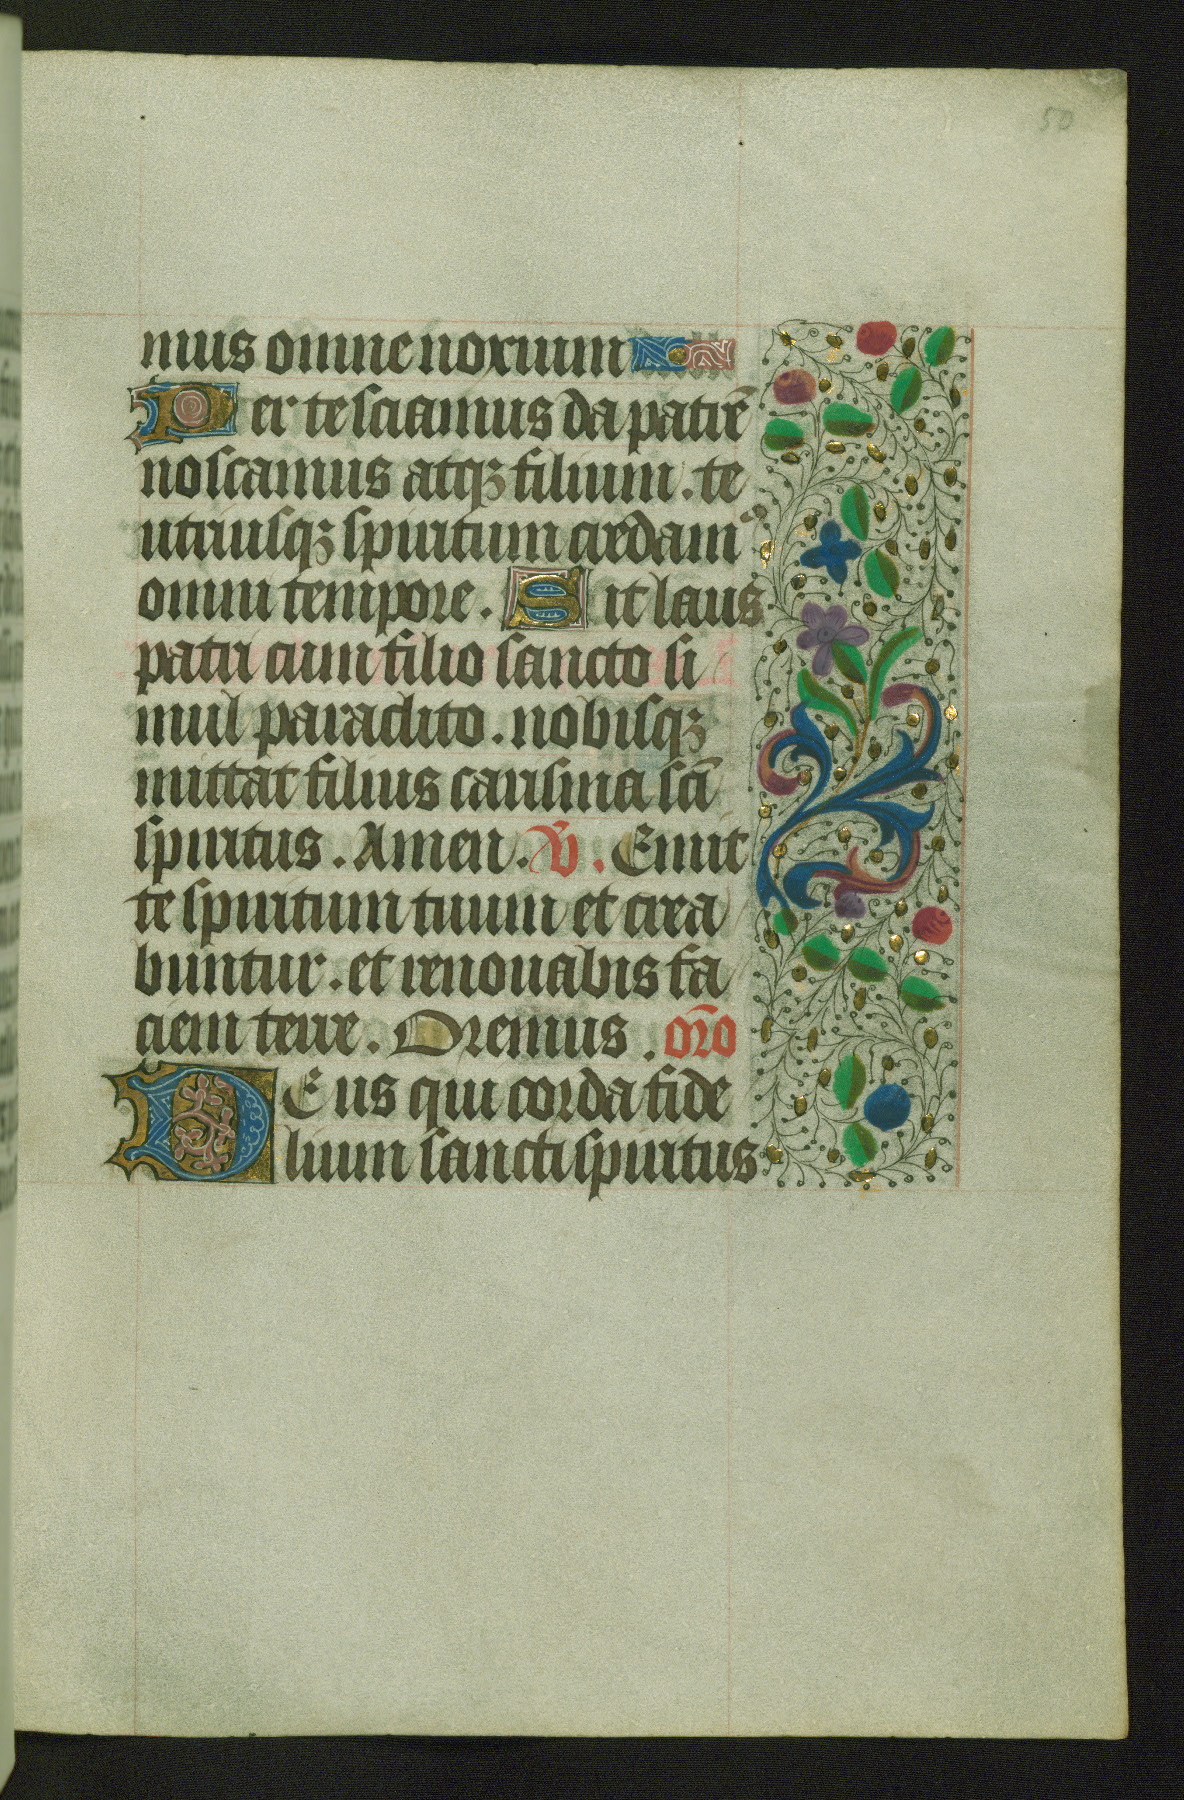 50
mus omne noxium
Per te sciamus da patrē
noscamus atqꝫ filium . te
utriusqꝫ spiritum credam᷒
omni tempore . Sit laus
patri cum filio sancto si
mul paraclito . nobisqꝫ
mittat filius carisma scī
spiritus . Amen . V̄ . Emit
te spiritum tuum et crea
buntur . et renouabis fa
ciem terre . Oremus . or̄o
DEus qui corda fide
lium sancti spiritus